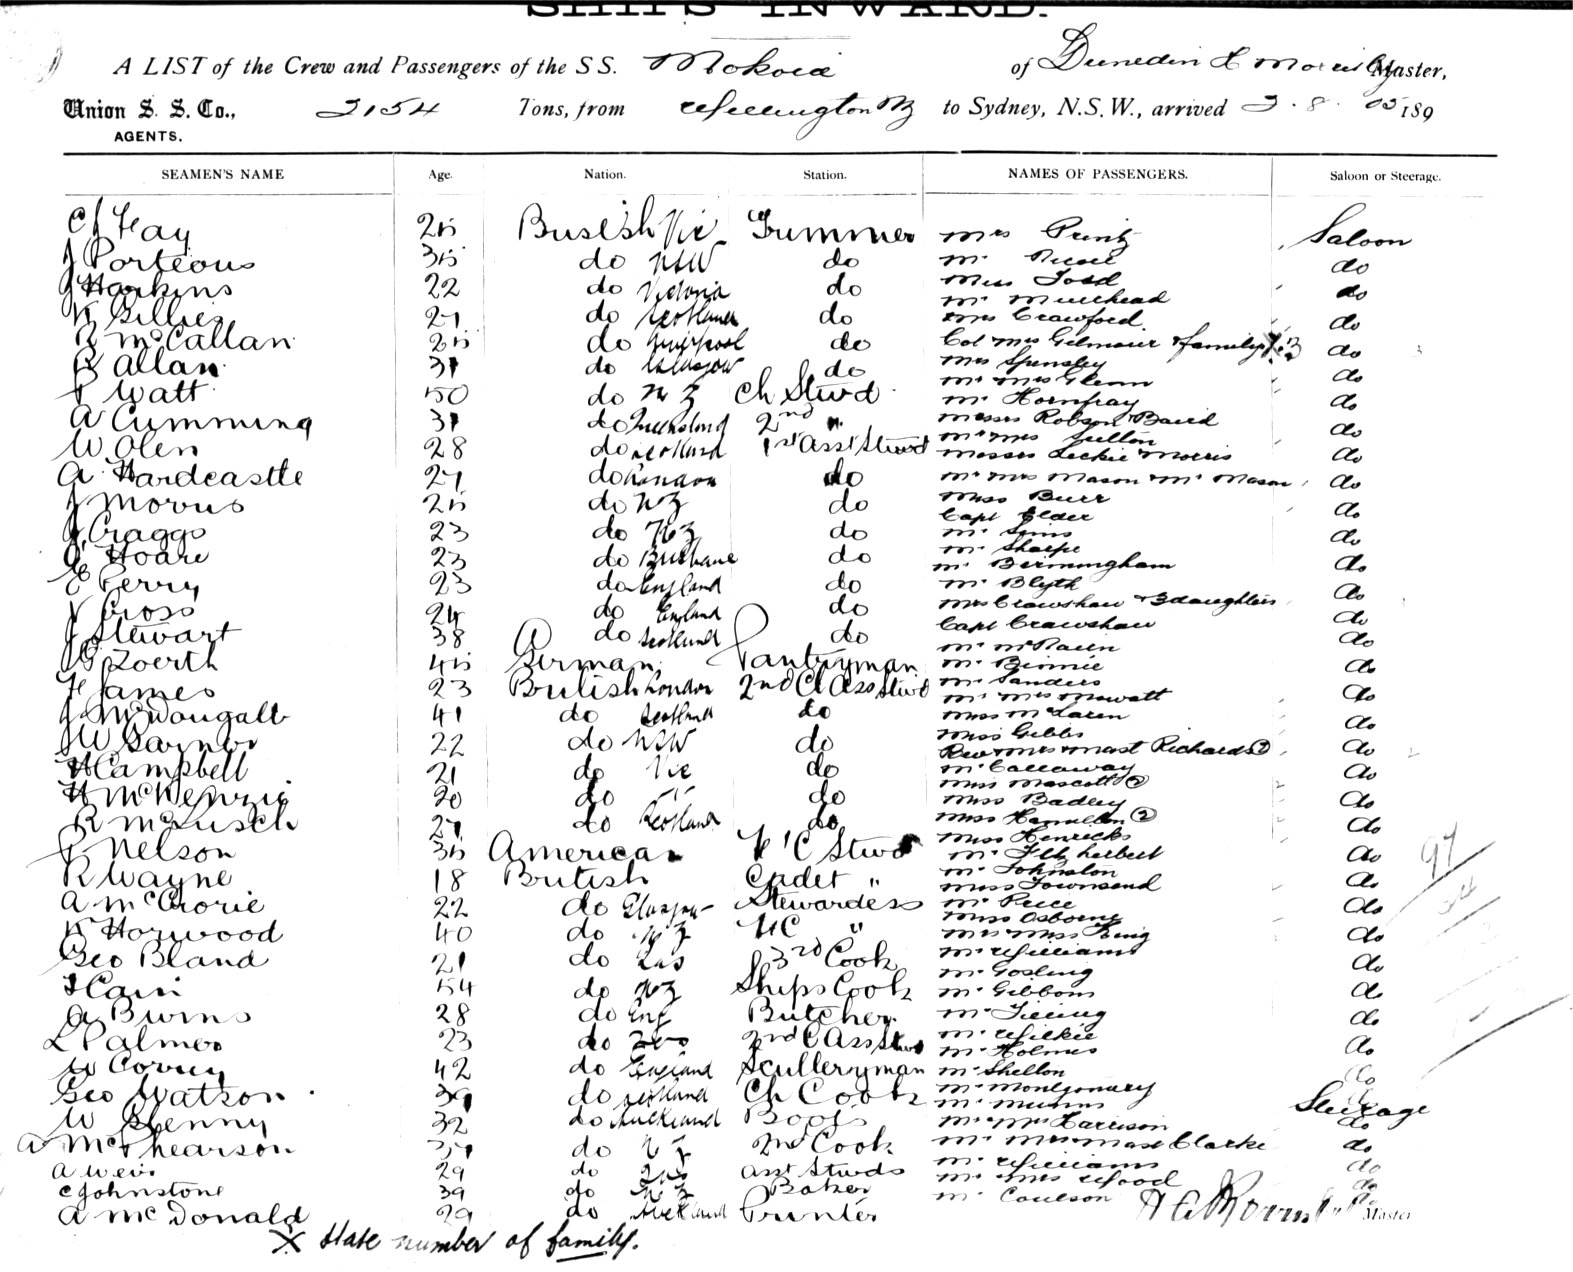 SHIPS INWARD.
A LIST of the Crew and Passengers of the S S. Mokoia of Dunedin Master,
Union S. S. Co., 2154 Tons, from Wellington NZ to Sydney, N.S.W., arrived 2. 8. 05 189
AGENTS.
SEAMEN'S NAME Age. Nation. Station. NAMES OF PASSENGERS. Saloon or Steerage.
C J Hay 25 British Vic Trimmer Mrs Printz Saloon
J Porteous 35 do NSW do Mr do
J Harkins 22 do Victoria do Miss Todd do
Mr Muirhead
K Gillies 27 do Scotland do Mrs Crawford. do
R McCallan 25 do Liverpool do Col Mrs Gilmour & family X 3 do
R Allan 31 do Glasgow do Mrs Spensley do
J Watt 50 do N Z Ch Stwd Mr Mrs Glenn do
Mr Hornfray
A Cumming 31 do Queensland 2nd " Messrs Robson Baird do
W Olen 28 do Scotland 1st Asst Stwd Mr Mrs do
Messrs Leckie Morris
A Hardcastle 27 do London do Mr Mrs Mason & Mr Mason do
J Morris 25 do NZ do Miss Burr do
Capt Elder
J Craggs 23 do NZ do Mr Sims do
G Hoare 23 do Brisbane do Mr Sharpe do
Mr Bermingham
E Perry 23 do England do Mr Blyth do
V Cross 24 do England do Mrs Crawshaw & 3 daughters do
J Stewart 38 do Scotland do Capt Crawshaw do
G Zoerth 45 German Pantryman Mr Binnie do
H James 23 British London 2nd Cl Ass Stwd Mr Sanders do
Mr Mrs Mowatt
J McDougall 41 do Scotland do Miss McLaren do
J W 22 do NSW do Miss Gibbs do
Rev & Mrs & Mast Richards
H Campbell 21 do Vic do Mr Callaway do
H McKenzie 20 do " do Miss Mascott (2) do
Miss Badley
R 27 do Scotland do Miss Hamilton (2) do
J Nelson 35 American F C Stwd Mr Fitzherbert do
R Wayne 18 British Cadet " Mr Johnston do
Miss Townsend
A McCrorie 22 do Glasgow Stewardess Mr Price do
Miss Osborne
K Horwood 40 do NZ " Mrs Miss King do
Geo Bland 21 do 3rd Cook Mr Williams do
Mr Gosling
J Cain 54 do NZ Ships Cook Mr Gibbons do
A Burns 28 do Eng Butcher Mr do
L Palmer 23 do 2nd C Ass Stwd Mr Wilkie do
Mr Holmes
W 42 do England Sculleryman Mr Shelton do
Geo Watson 39 do Scotland Ch Cook Mr Montgomary
Mr Munns Steerage
W 32 do Auckland Boots Mr Mrs Harrison do
A McPhearson do NZ 2nd Cook Mr Mrs Mast Clarke do
A Weir 29 do Asst Stwds Mr Williams do
C Johnstone 39 do NZ Baker Mr Mrs Wood do
A McDonald 29 do Auckland Printer Mr Coulson do Master
X State number of family.